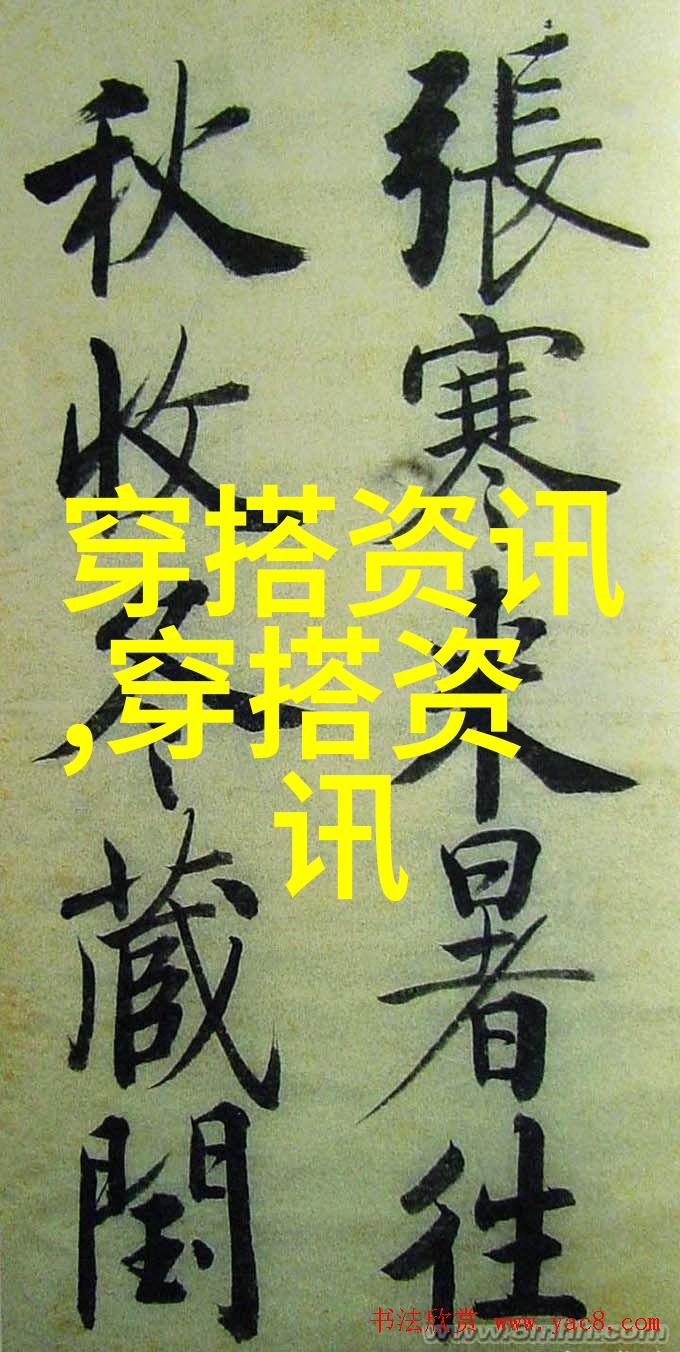 張寒来暑往
秋收冬蔵閏
穿搭资讯
,穿搭资
讯
书法欣赏 www.yac8.com